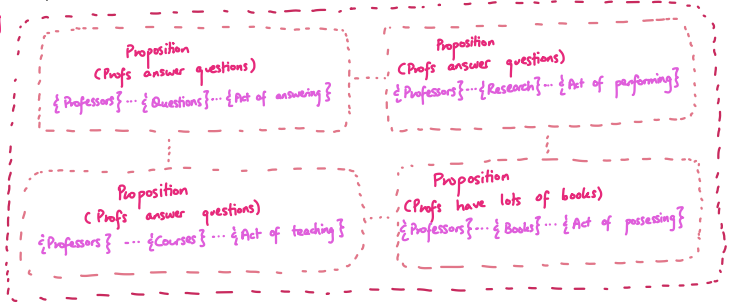 Proposition
(Profs answer questions)
{Professors} ... {Questions} ... {Act of answering}
Proposition
(Profs answer questions)
{Professors} ... {Research} ... {Act of performing}
Proposition
(Profs answer questions)
{Professors} ... {Courses} ... {Act of teaching}
Proposition
(Profs have lots of books)
{Professors} ... {Books} ... {Act of possessing}